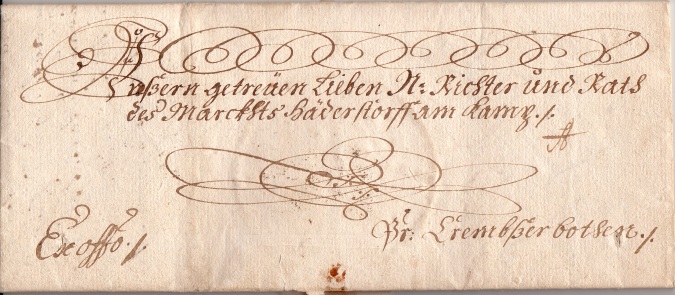 Unßern getreüen Lieben N: Richter und Rath
des Marckhts Häderstorff am Kamp ./.
Ex offo ./.
Pr: Crembßer bothen ./.